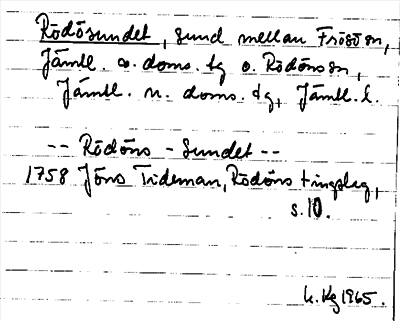 Rödösundet, sund mellan Frösön,
Jämtl. ö. doms. tg o. Rödönsn,
Jämtl. n. doms. tg, Jämtl. l.
-- Rödöns - Sundet --
1758 Jöns Tideman, Rödöns tingslag,
s. 10.
K. Kg 1965.